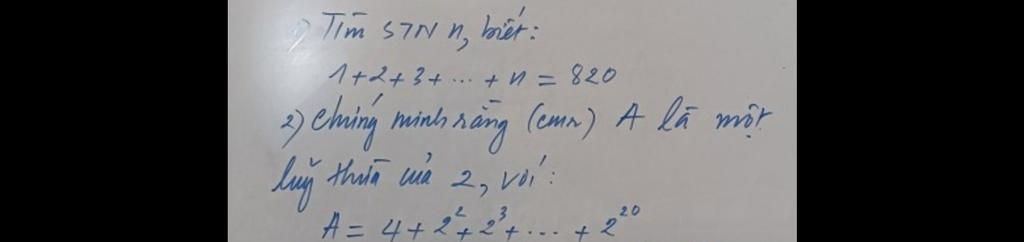 1) Tìm STN n, biết:
1+2+3+ ... + n = 820
2) Chứng minh rằng (cmr) A là một
luỹ thừa của 2, với:
A = 4 + 2² + 2³ + ... + 2²⁰